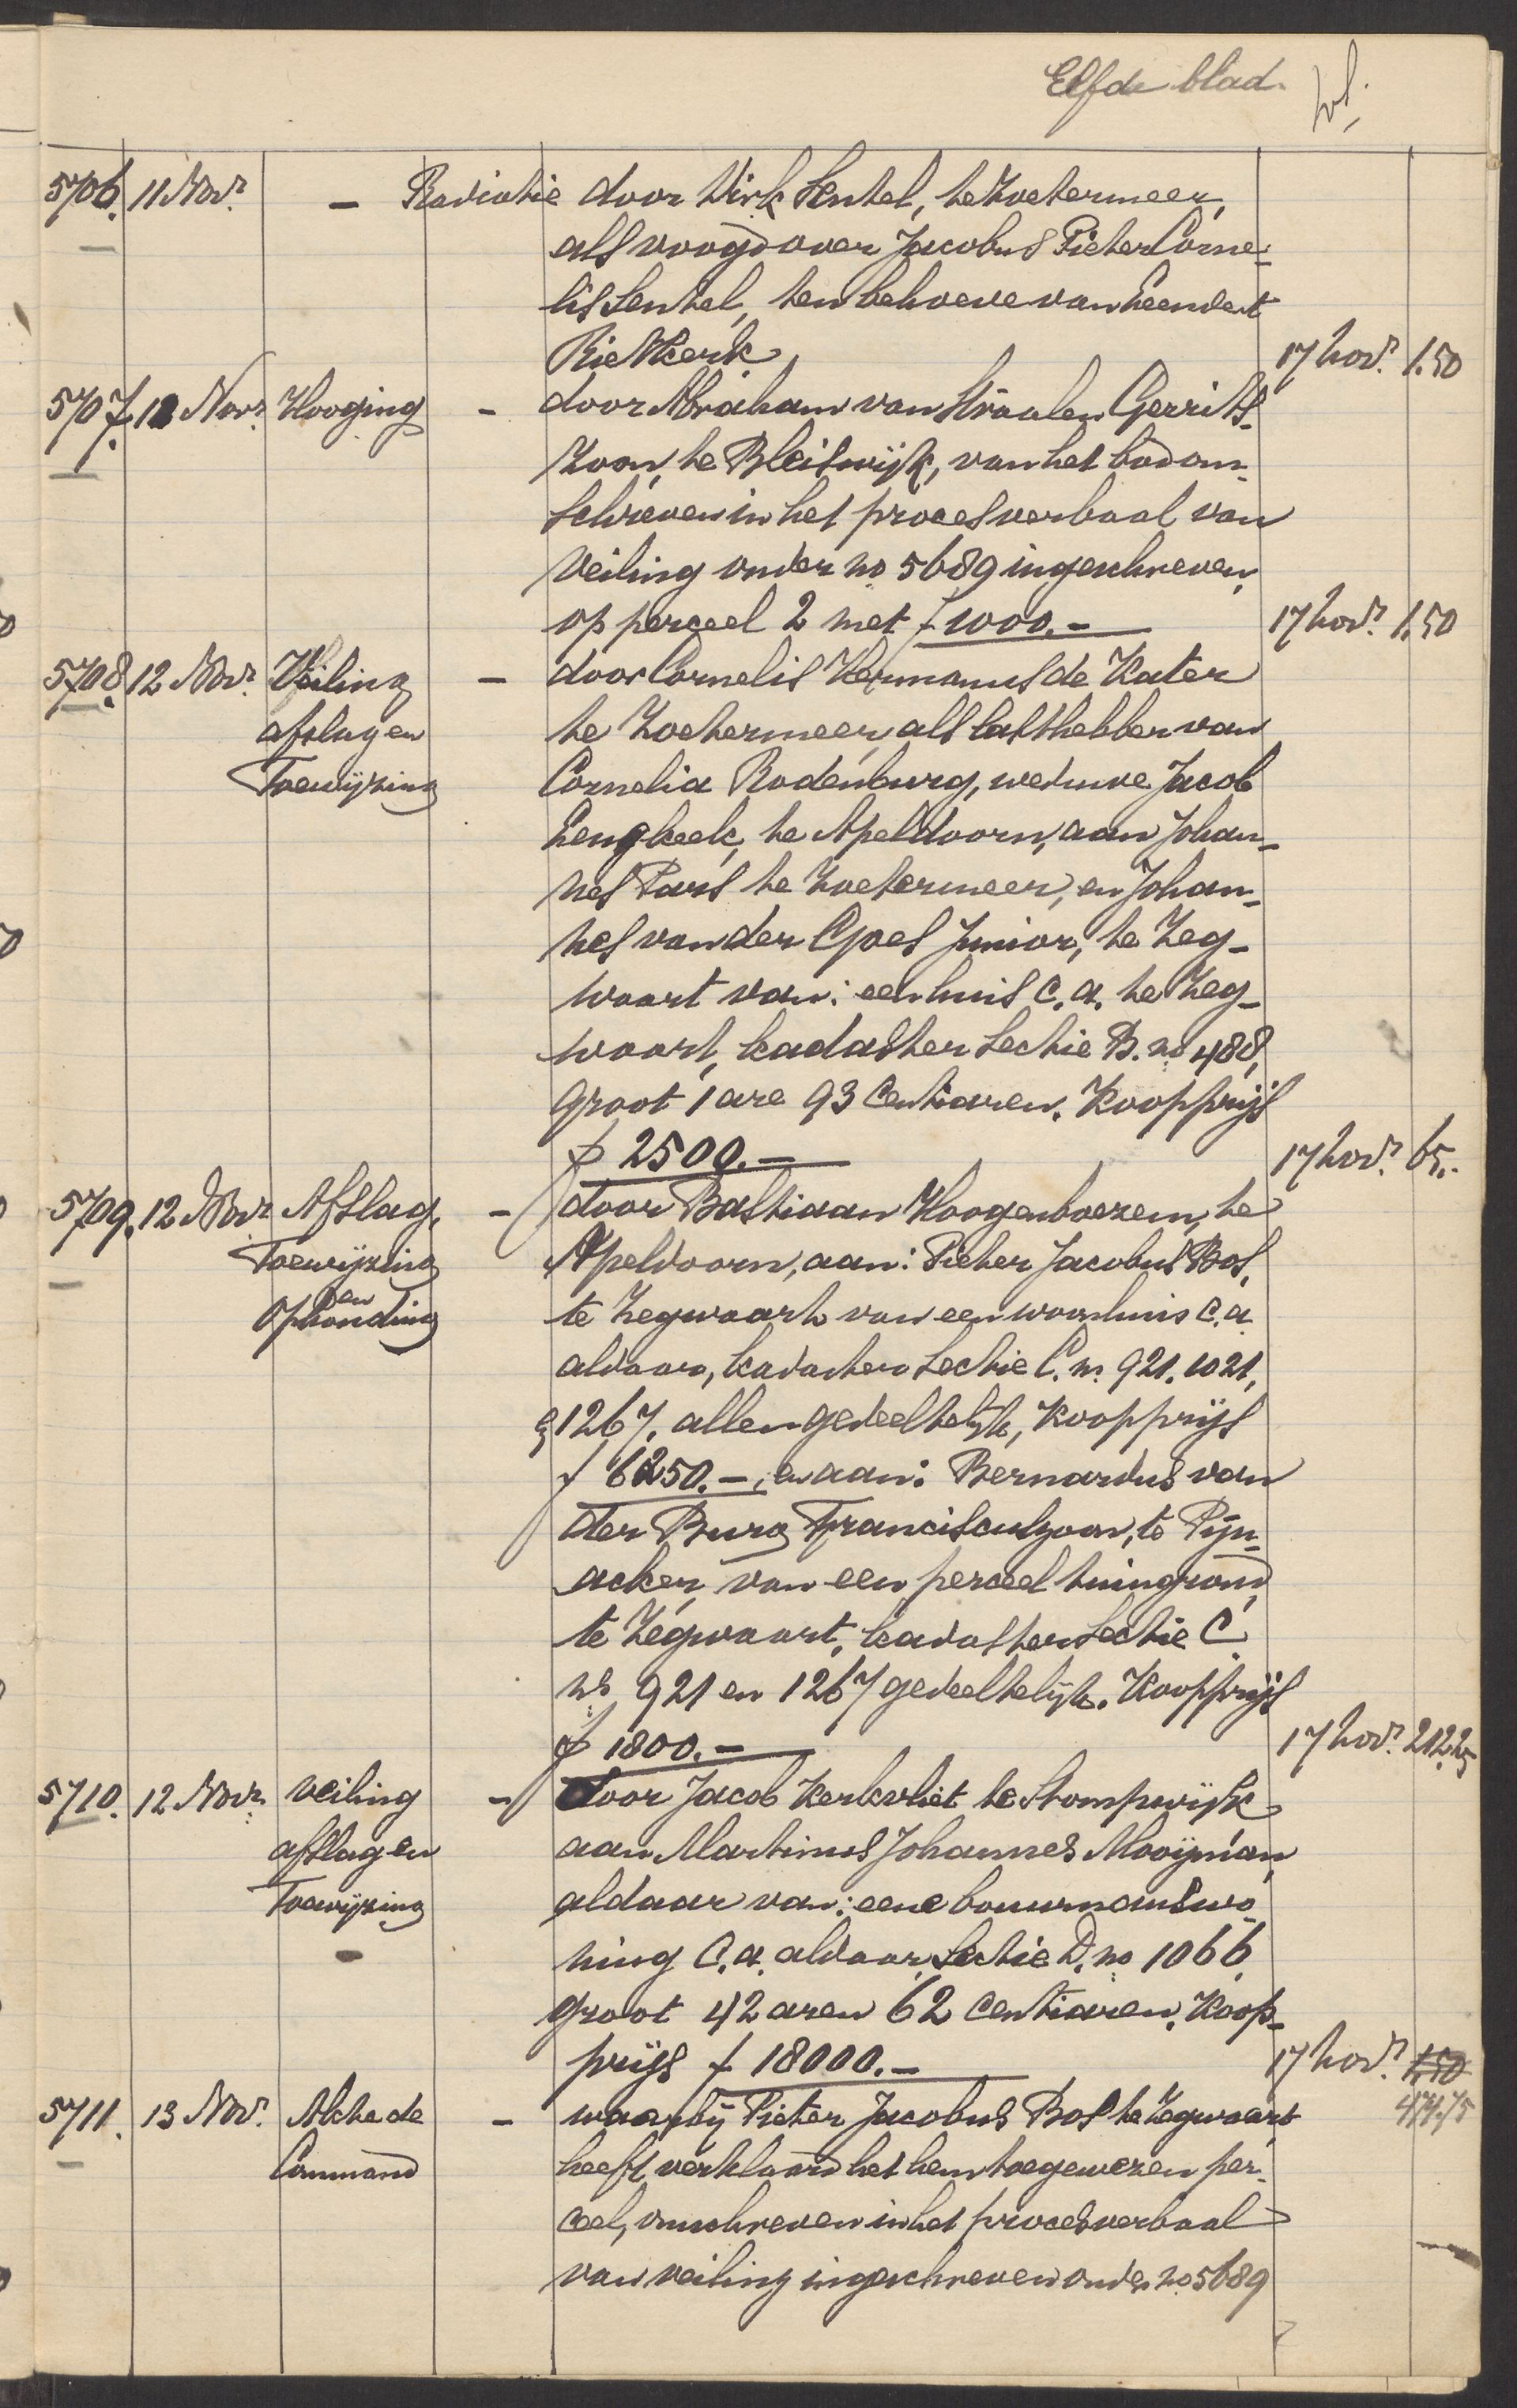 Elfde blad.
5706. 11 Nov. – Radiatie door Dirk Sentel, te Zoetermeer,
als voogd over Jacobus Pieter Corne-
lis Sentel, ten behoeve van Leendert
Rietkerk 17 Nov. 1.50
5707. 12 Nov. Hooging – door Abraham van Straalen Gerrits-
zoon, te Bleiswijk, van het bod om-
schreven in het procesverbaal van
veiling onder no 5689 ingeschreven,
op perceel 2 met f 1000.– 17 Nov. 1.50
5708. 12 Nov. Veiling – door Cornelis Hermanus de Kater
afslag en te Zoetermeer, als lasthebber van
Toewijzing Cornelia Rodenburg, weduwe Jacob
Lengkeek, te Apeldoorn, aan Johan-
nes Paris te Zoetermeer, en Johan-
nes van der Goes Junior, te Zeg-
waart van: een huis c.a. te Zeg-
waart, kadaster Sectie B. no 488,
groot 1 are 93 centiaren. Koopprijs
f 2500.– 17 Nov. 65.-
5709. 12 Nov. Afslag, – door Bastiaan Hoogenboezem, te
Toewijzing Apeldoorn, aan: Pieter Jacobus Bos,
en te Zegwaart van een woonhuis c.a.
Ophouding aldaar, kadaster Sectie C. no 921. 1021,
& 1267. allen gedeeltelijk, Koopprijs
f 6250.–, en aan: Bernardus van
der Burg Franciscuszoon, te Pijn-
acker, van een perceel tuingrond
te Zegwaart, kadaster Sectie C.
no 921 en 1267 gedeeltelijk. Koopprijs
f 1800.– 17 Nov. 212.25
5710. 12 Nov. veiling – door Jacob Kerkvliet te Stompwijk
afslag en aan Martinus Johannes Mooijman,
Toewijzing aldaar van: eene bouwmanswo-
ning c.a. aldaar, Sectie D. no 1066,
groot 42 aren 62 centiaren. Koop-
prijs f 18000.– 17 Nov. 1.50
474.75
5711. 13 Nov. Akte de – waarbij Pieter Jacobus Bos te Zegwaart
Command heeft verklaard het hem toegewezen per-
ceel, omschreven in het procesverbaal
van veiling ingeschreven onder no 5689